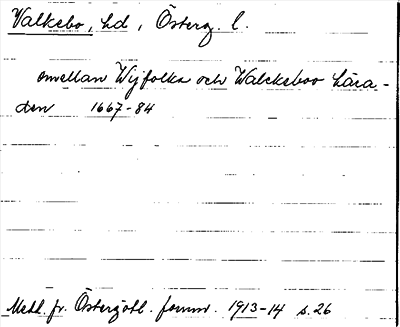 Valkebo, hd, Österg. l.
emellan Wijfolka och Walckeboo Hära-
den 1667-84
Medd. fr. Östergötl. fornm. 1913-14 s. 26